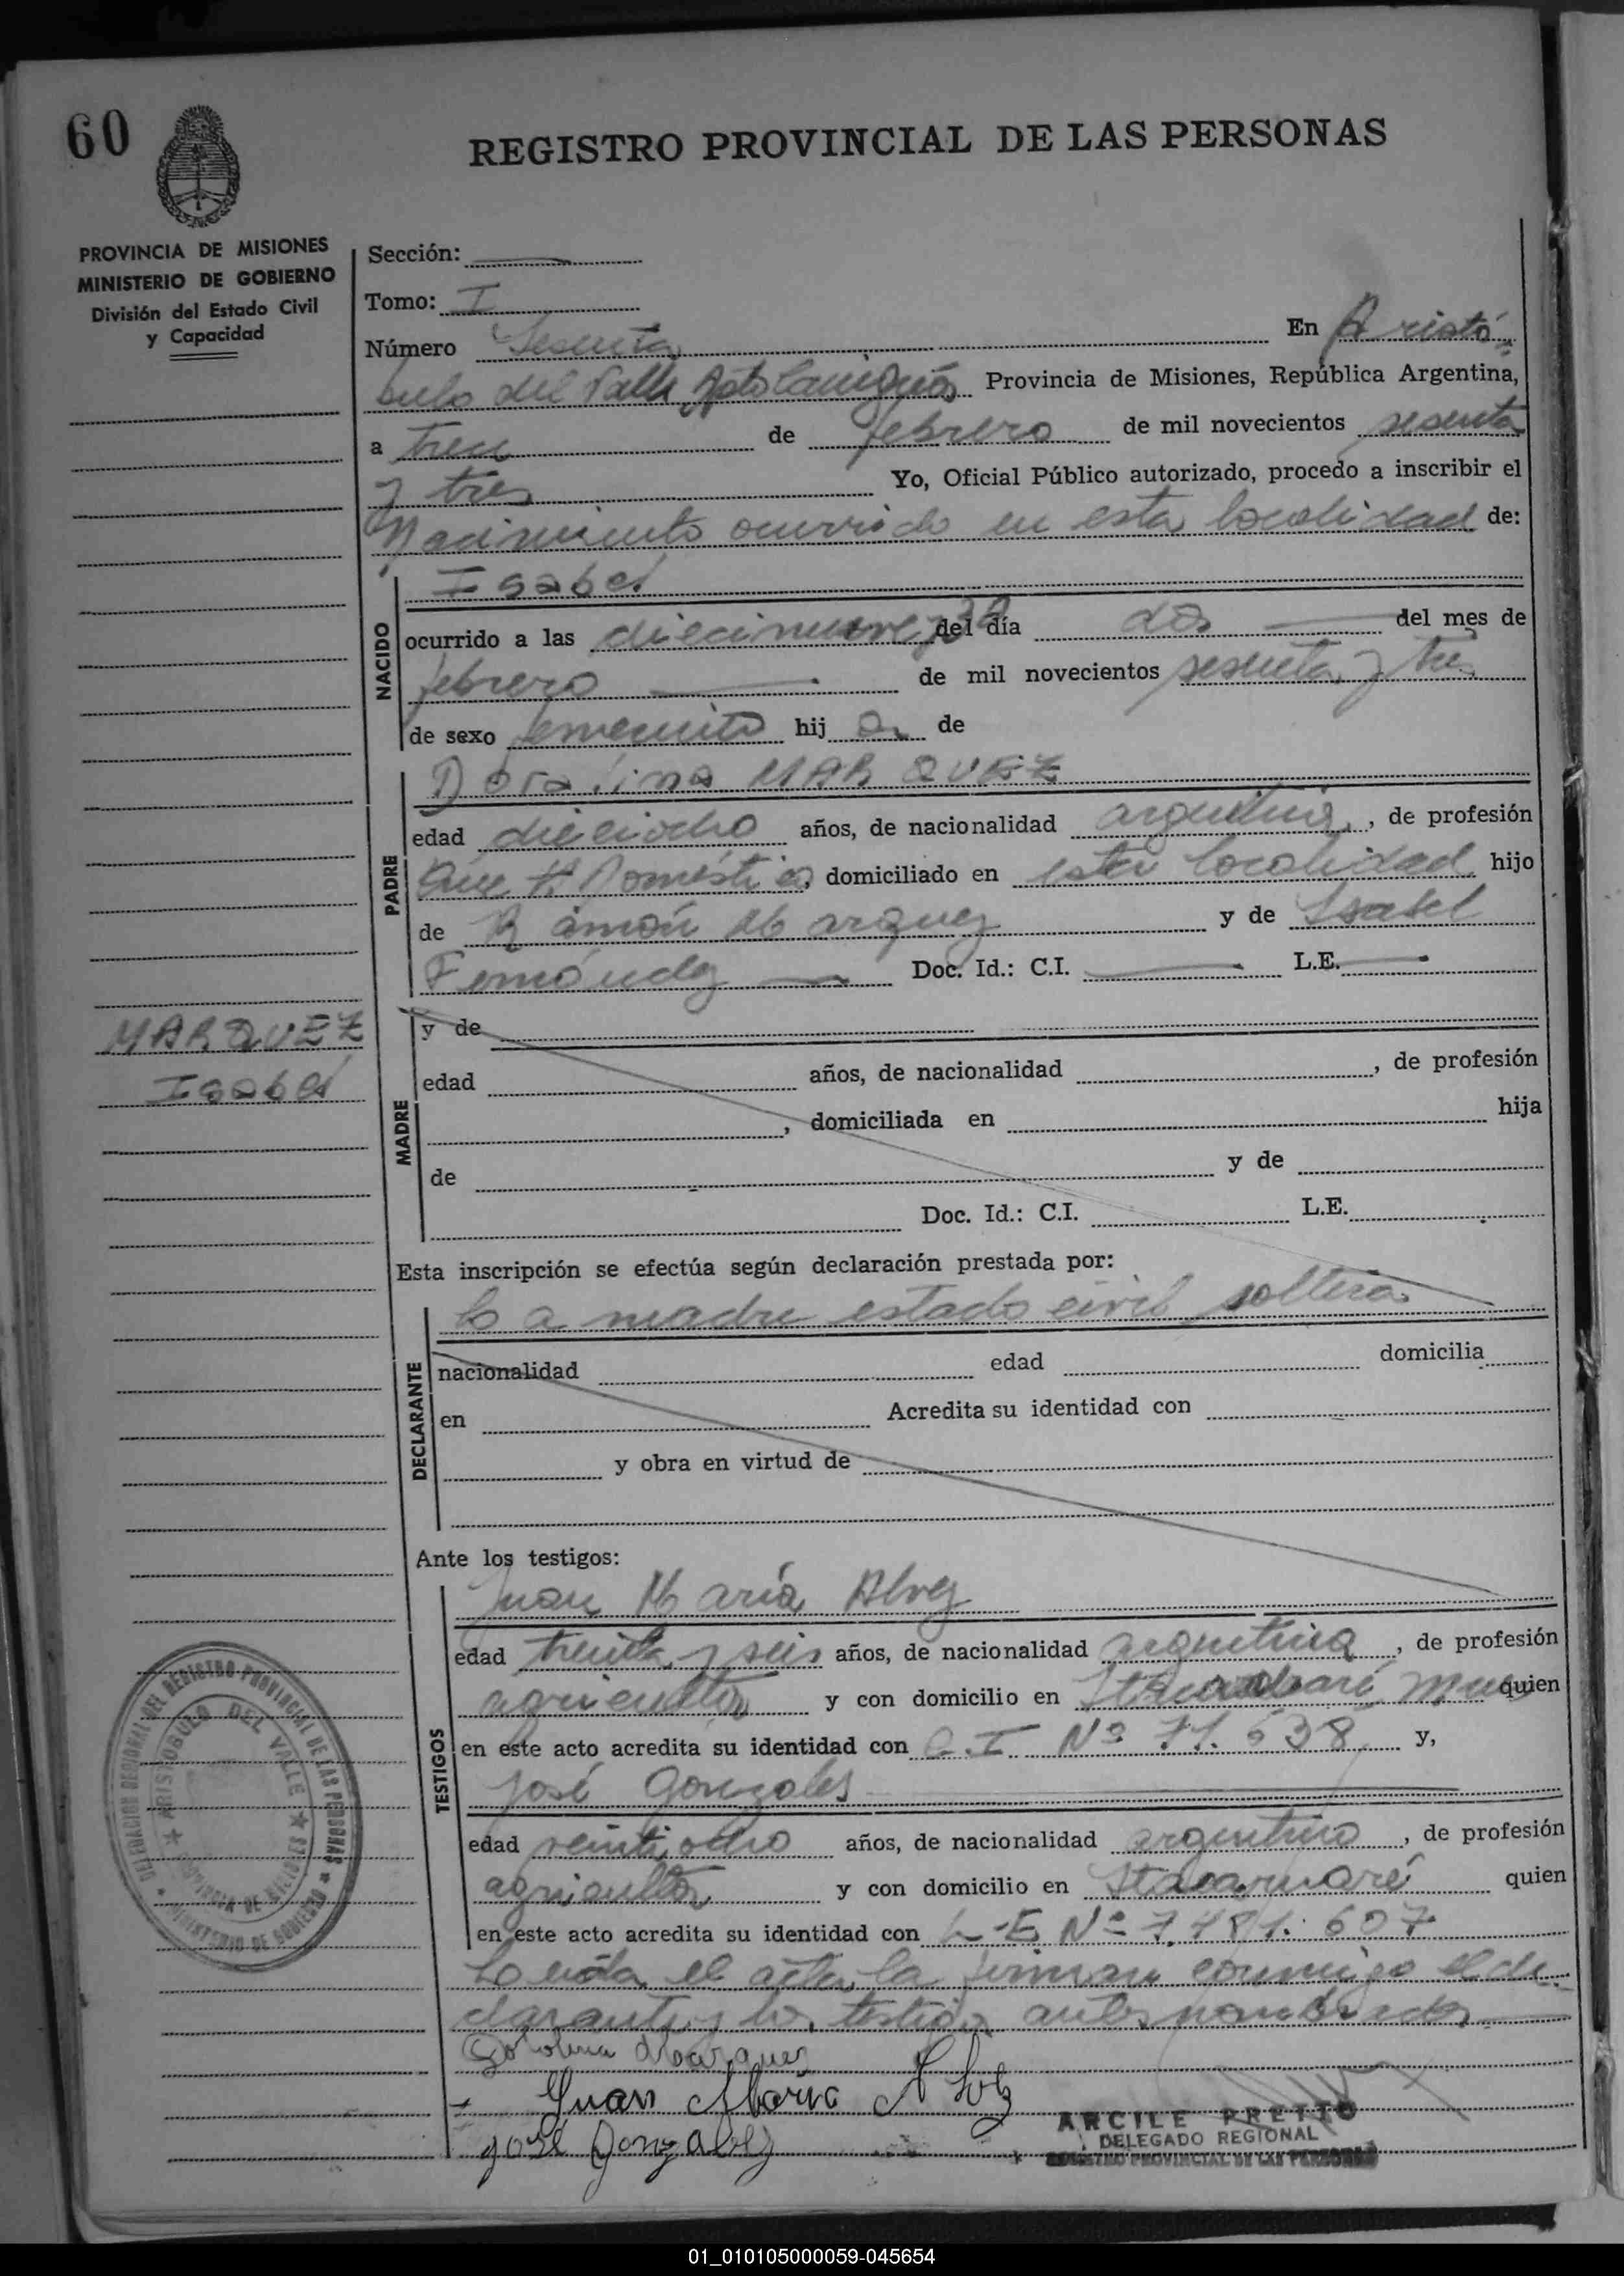 60
REGISTRO PROVINCIAL DE LAS PERSONAS
PROVINCIA DE MISIONES
MINISTERIO DE GOBIERNO
División del Estado Civil
y Capacidad
Sección:
Tomo: I
Número Sesenta En Aristó-
bulo del Valle Dpto Cainguás Provincia de Misiones, República Argentina,
a tres de febrero de mil novecientos sesenta
y tres Yo, Oficial Público autorizado, procedo a inscribir el
Nacimiento ocurrido en esta localidad de:
NACIDO
Isabel
ocurrido a las diecinueve y 30 del día dos del mes de
febrero de mil novecientos sesenta y tres
de sexo femenino hij a de
PADRE
MARQUEZ
edad dieciocho años, de nacionalidad argentina, de profesión
Que H Doméstico, domiciliado en esta localidad hijo
de Ramón Marquez y de Isabel
Fernández Doc. Id.: C.I. L.E.
MARQUEZ
Isabel
MADRE
y de
edad años, de nacionalidad , de profesión
, domiciliada en hija
de y de
Doc. Id.: C.I. L.E.
Esta inscripción se efectúa según declaración prestada por:
DECLARANTE
La madre estado civil soltera
nacionalidad edad domicilia
en Acredita su identidad con
y obra en virtud de
Ante los testigos:
TESTIGOS
Juan María Alvez
edad treinta y seis años, de nacionalidad argentina, de profesión
agricultor y con domicilio en quien
en este acto acredita su identidad con C.I. Nº 71.638, y,
José Gonzales
edad veintiocho años, de nacionalidad argentino, de profesión
agricultor y con domicilio en Itacaruaré quien
en este acto acredita su identidad con L-E Nº 7.481.607
Leída el acta, la firman conmigo el de-
clarante y los testigos antes nombrados
Marquez
Juan Maria
José Gonzalez
ARCILE PRETTO
DELEGADO REGIONAL
REGISTRO PROVINCIAL DE LAS PERSONAS
DELEGACION REGIONAL DEL REGISTRO PROVINCIAL DE LAS PERSONAS
MINISTERIO DE GOBIERNO
ARISTOBULO DEL VALLE
PROVINCIA DE MISIONES
01_010105000059-045654